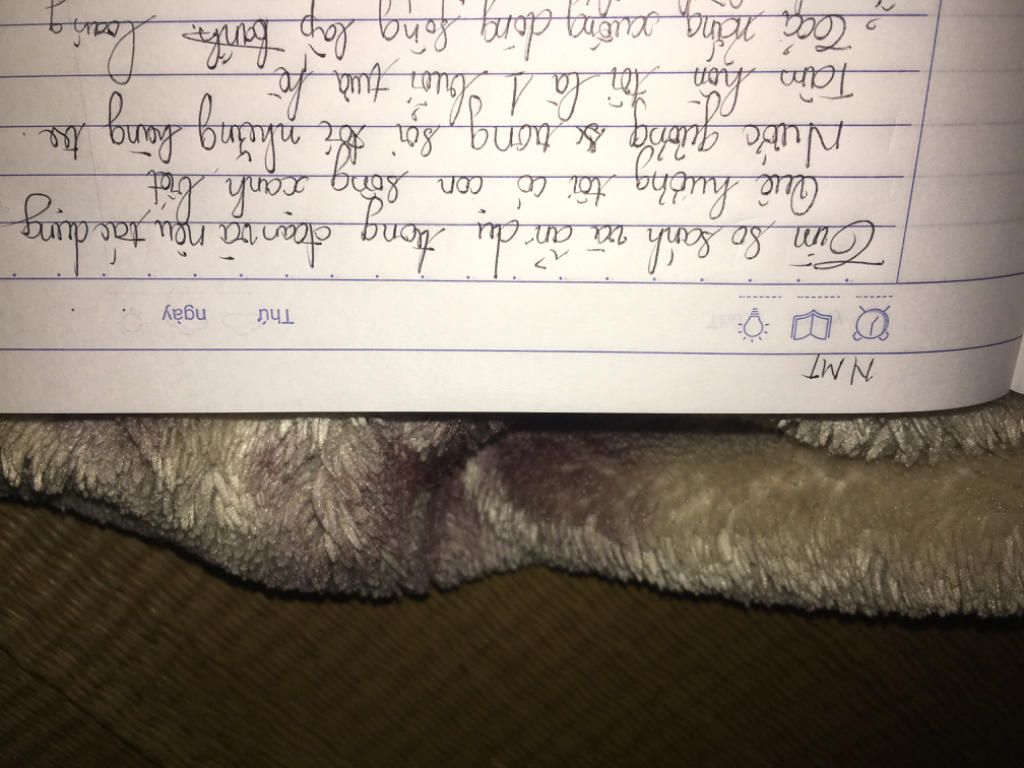 NMT
Thứ ngày
Tìm so sánh và ẩn dụ trong đoạn và nêu tác dụng
Quê hương tôi có con sông xanh biết
Nước gương trong soi tóc những hàng tre
Tâm hồn tôi là 1 buổi trưa hè
Toả nắng xuống dòng sông lấp loáng